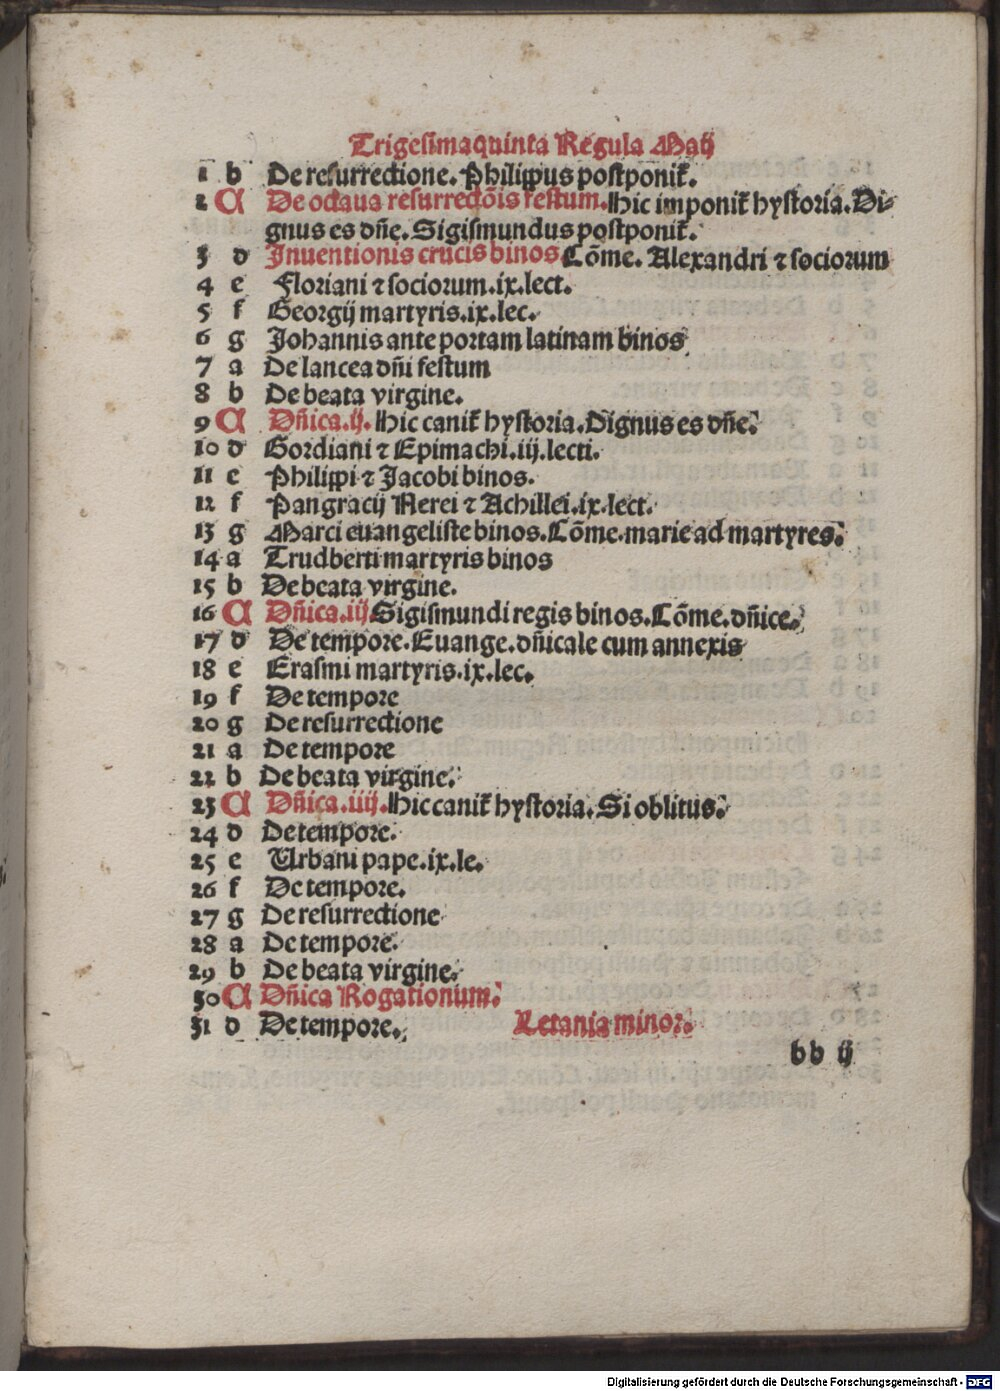 Trigesimaquinta Regula Maij
1 b De resurrectione. Philippus postponit̄.
2 A De octaua resurrectōis festum. Hic imponit̄ hystoria. Di-
gnus es dn̄e. Sigismundus postponit̄.
3 d Inuentionis crucis binos Cōme. Alexandri ⁊ sociorum
4 e Floriani ⁊ sociorum. ix. lect.
5 f Georgij martyris. ix. lec.
6 g Johannis ante portam latinam binos
7 a De lancea dn̄i festum
8 b De beata virgine.
9 A Dn̄ica. ij. Hic canit̄ hystoria. Dignus es dn̄e.
10 d Gordiani ⁊ Epimachi. iij. lecti.
11 e Philippi ⁊ Jacobi binos.
12 f Pangracij Nerei ⁊ Achillei. ix. lect.
13 g Marci euangeliste binos. Cōme. marie ad martyres.
14 a Trudberti martyris binos
15 b De beata virgine.
16 A Dn̄ica. iij Sigismundi regis binos. Cōme. dn̄ice.
17 d De tempore. Euange. dn̄icale cum annexis
18 e Erasmi martyris. ix. lec.
19 f De tempore
20 g De resurrectione
21 a De tempore
22 b De beata virgine.
23 A Dn̄ica. iiij. Hic canit̄ hystoria. Si oblitus.
24 d De tempore.
25 e Urbani pape. ix. le.
26 f De tempore.
27 g De resurrectione
28 a De tempore.
29 b De beata virgine.
30 A Dn̄ica Rogationum.
31 d De tempore. Letania minor.
bb ij
Digitalisierung gefördert durch die Deutsche Forschungsgemeinschaft - DFG